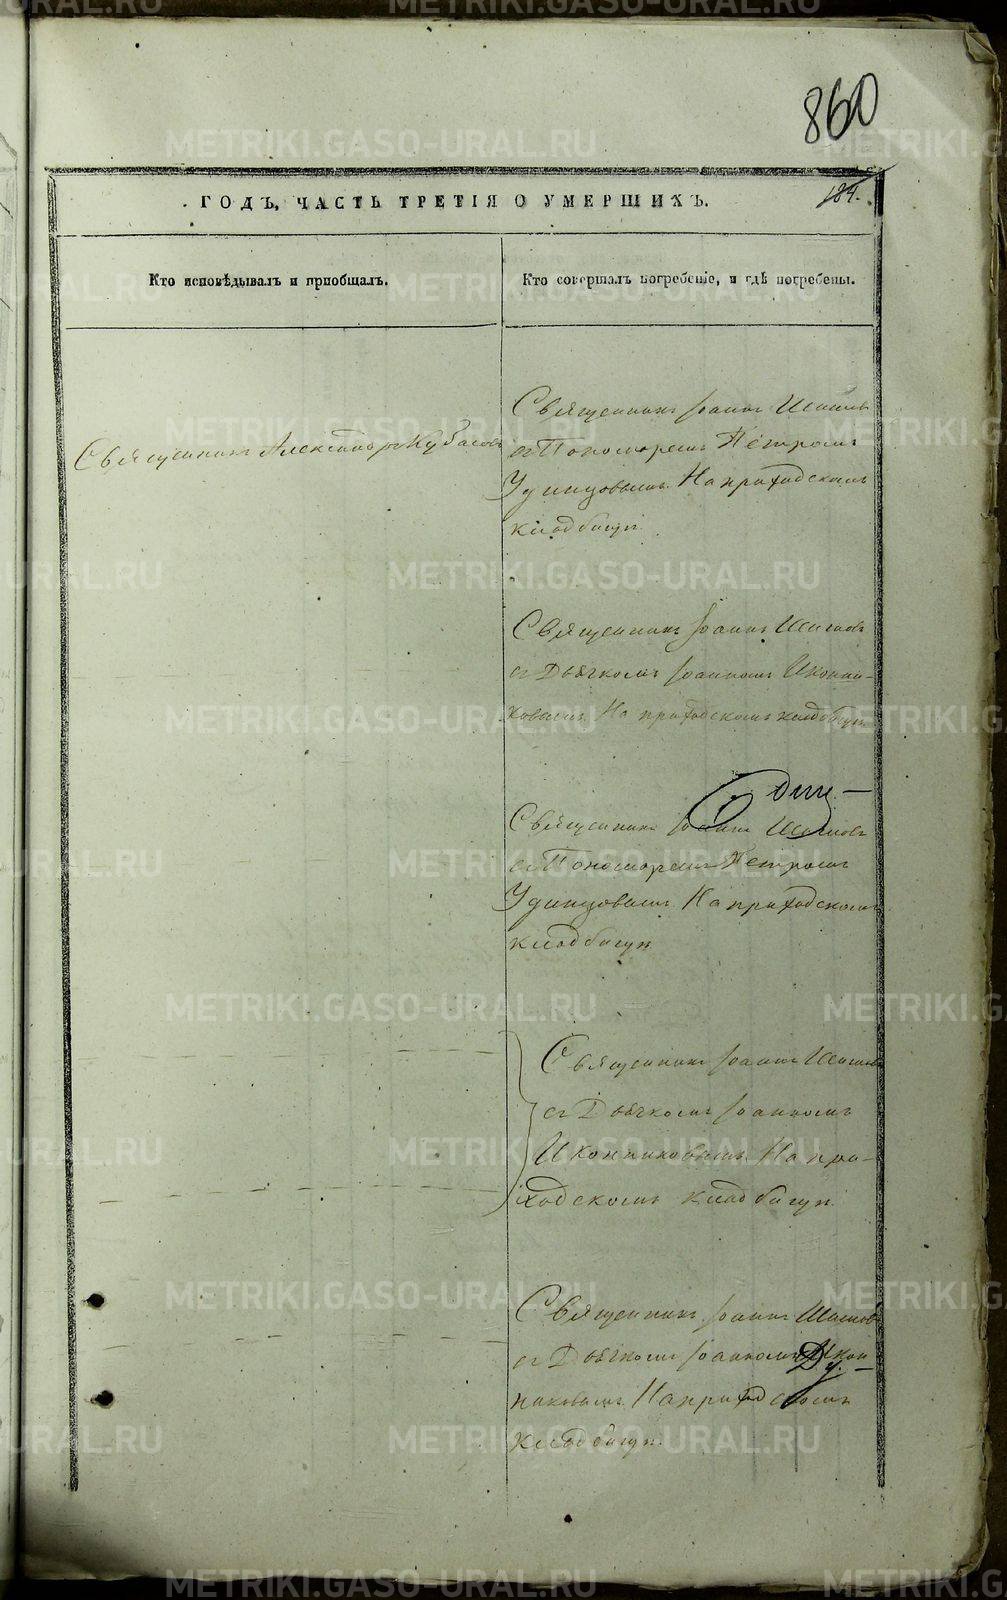 860
184.
ГОДЪ, ЧАСТЬ ТРЕТІЯ О УМЕРШИХЪ.
Кто исповѣдывалъ и приобщалъ.
Кто совершалъ погребеніе, и гдѣ погребены.
Священникъ Александръ Кубасовъ
Священникъ Іоаннъ
съ Пономаремъ Петромъ
Удинцовымъ. На приходскомъ
кладбищѣ.
Священникъ Іоаннъ
съ Дьячкомъ Іоанномъ Иконни-
ковымъ. На приходскомъ кладбищѣ.
Священникъ Іоаннъ
съ Пономаремъ Петромъ
Удинцовымъ На приходскомъ
кладбищѣ.
Священникъ Іоаннъ
съ Дьячкомъ Іоанномъ
Иконниковымъ На при-
ходскомъ кладбищѣ.
Священникъ Іоаннъ
съ Дьячкомъ Іоанномъ Икон
никовымъ. На приходскомъ
кладбищѣ.
METRIKI.GASO-URAL.RU